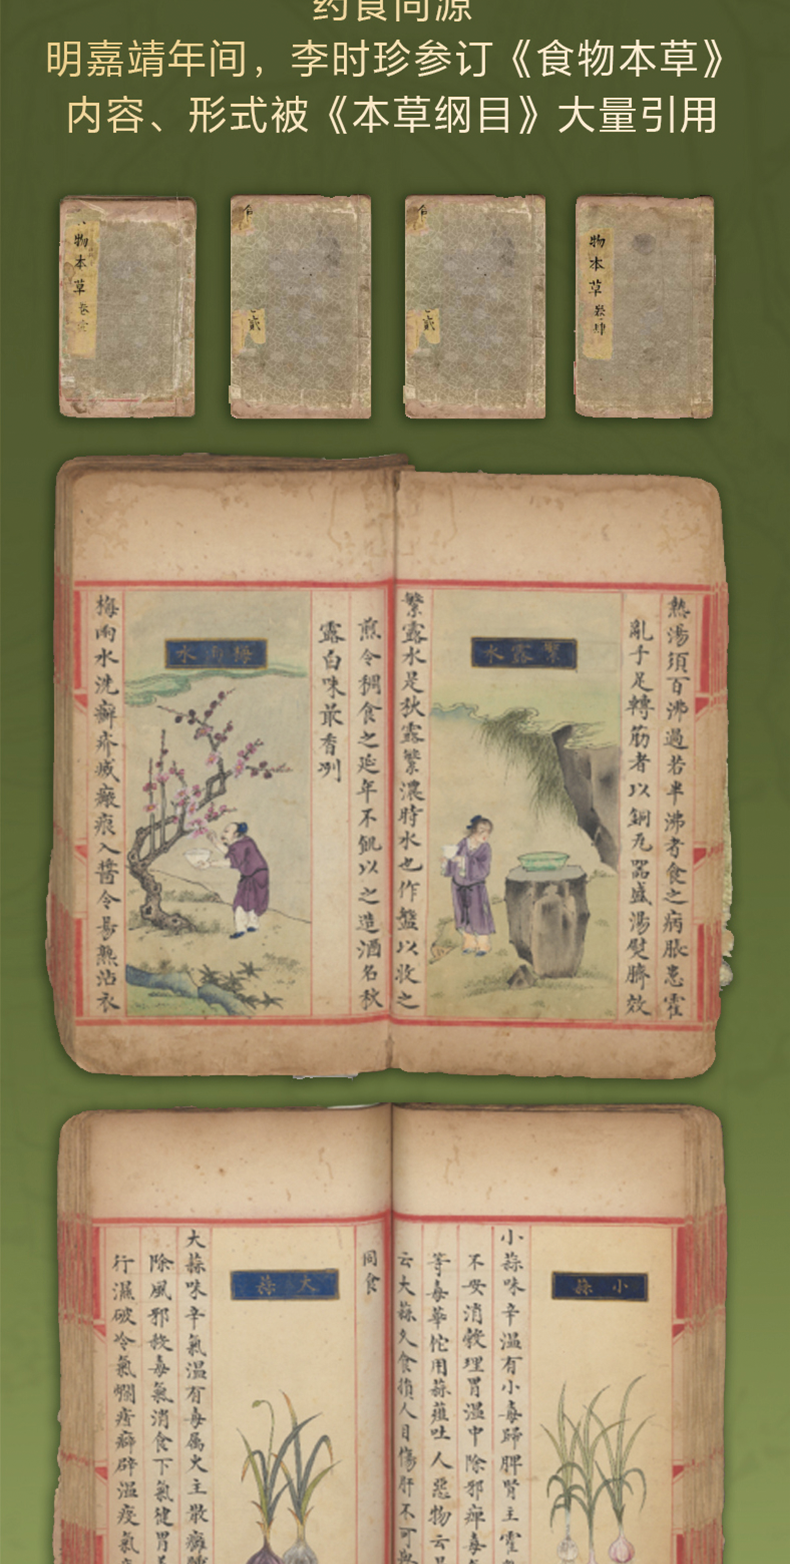 药食同源
明嘉靖年间，李时珍参订《食物本草》
内容、形式被《本草纲目》大量引用
物本草卷
食
貳
食
貳
物本草 肆
熱湯須百沸過若半沸者食之病脹患霍
亂手足轉筋者以銅瓦器盛湯熨臍效
繁露水
繁露水是秋露繁濃時水也作盤以收之
煎令稠食之延年不飢以之造酒名秋
露白味最香冽
梅雨水
梅雨水洗癬疥滅瘢痕入醬令易熟沾衣
小蒜
小蒜味辛溫有小毒歸脾腎主霍
不安消穀理胃溫中除邪痺毒
等毒華佗用蒜虀吐人惡物云
云大蒜久食損人目傷肝不可與
同食
大蒜
大蒜味辛氣溫有毒屬火主散癰腫
除風邪殺毒氣消食下氣健胃
行濕破冷氣爛痃癖辟溫疫氣